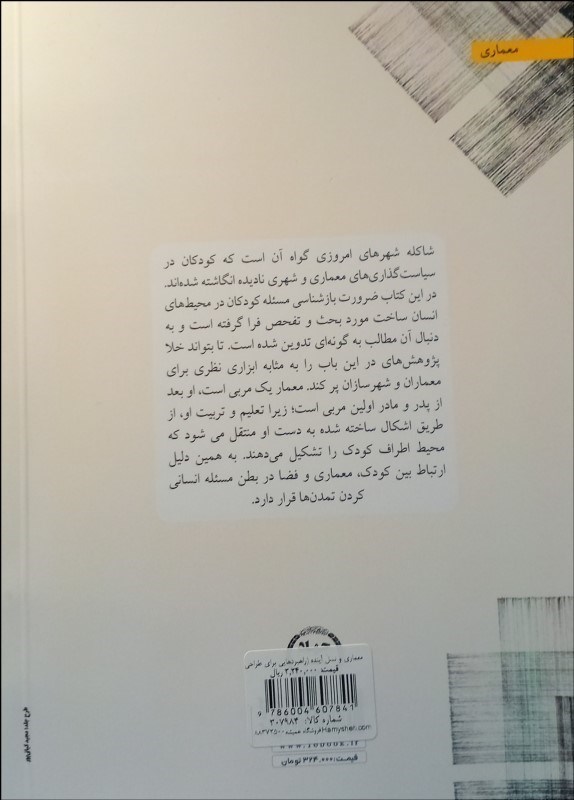 معماری
شاکله شهرهای امروزی گواه آن است که کودکان در
سیاست‌گذاری‌های معماری و شهری نادیده انگاشته شده‌اند.
در این کتاب ضرورت بازشناسی مسئله کودکان در محیط‌های
انسان ساخت مورد بحث و تفحص قرا گرفته است و به
دنبال آن مطالب به گونه‌ای تدوین شده است. تا بتواند خلا
پژوهش‌های در این باب را به مثابه ابزاری نظری برای
معماران و شهرسازان پر کند. معمار یک مربی است، او بعد
از پدر و مادر اولین مربی است؛ زیرا تعلیم و تربیت او، از
طریق اشکال ساخته شده به دست او منتقل می شود که
محیط اطراف کودک را تشکیل می‌دهند. به همین دلیل
ارتباط بین کودک، معماری و فضا در بطن مسئله انسانی
کردن تمدن‌ها قرار دارد.
معماری و نسل آینده (راهبردهایی برای طراحی
قیمت: ۳,۲۴۰,۰۰۰ ریال
9 786004 607841
شماره کالا: ۳۰۷۹۸۴
Hamyshen.com فروشگاه همیشه ۸۸۴۷۲۵۰۰
قیمت: ۳۲۴,۰۰۰ تومان